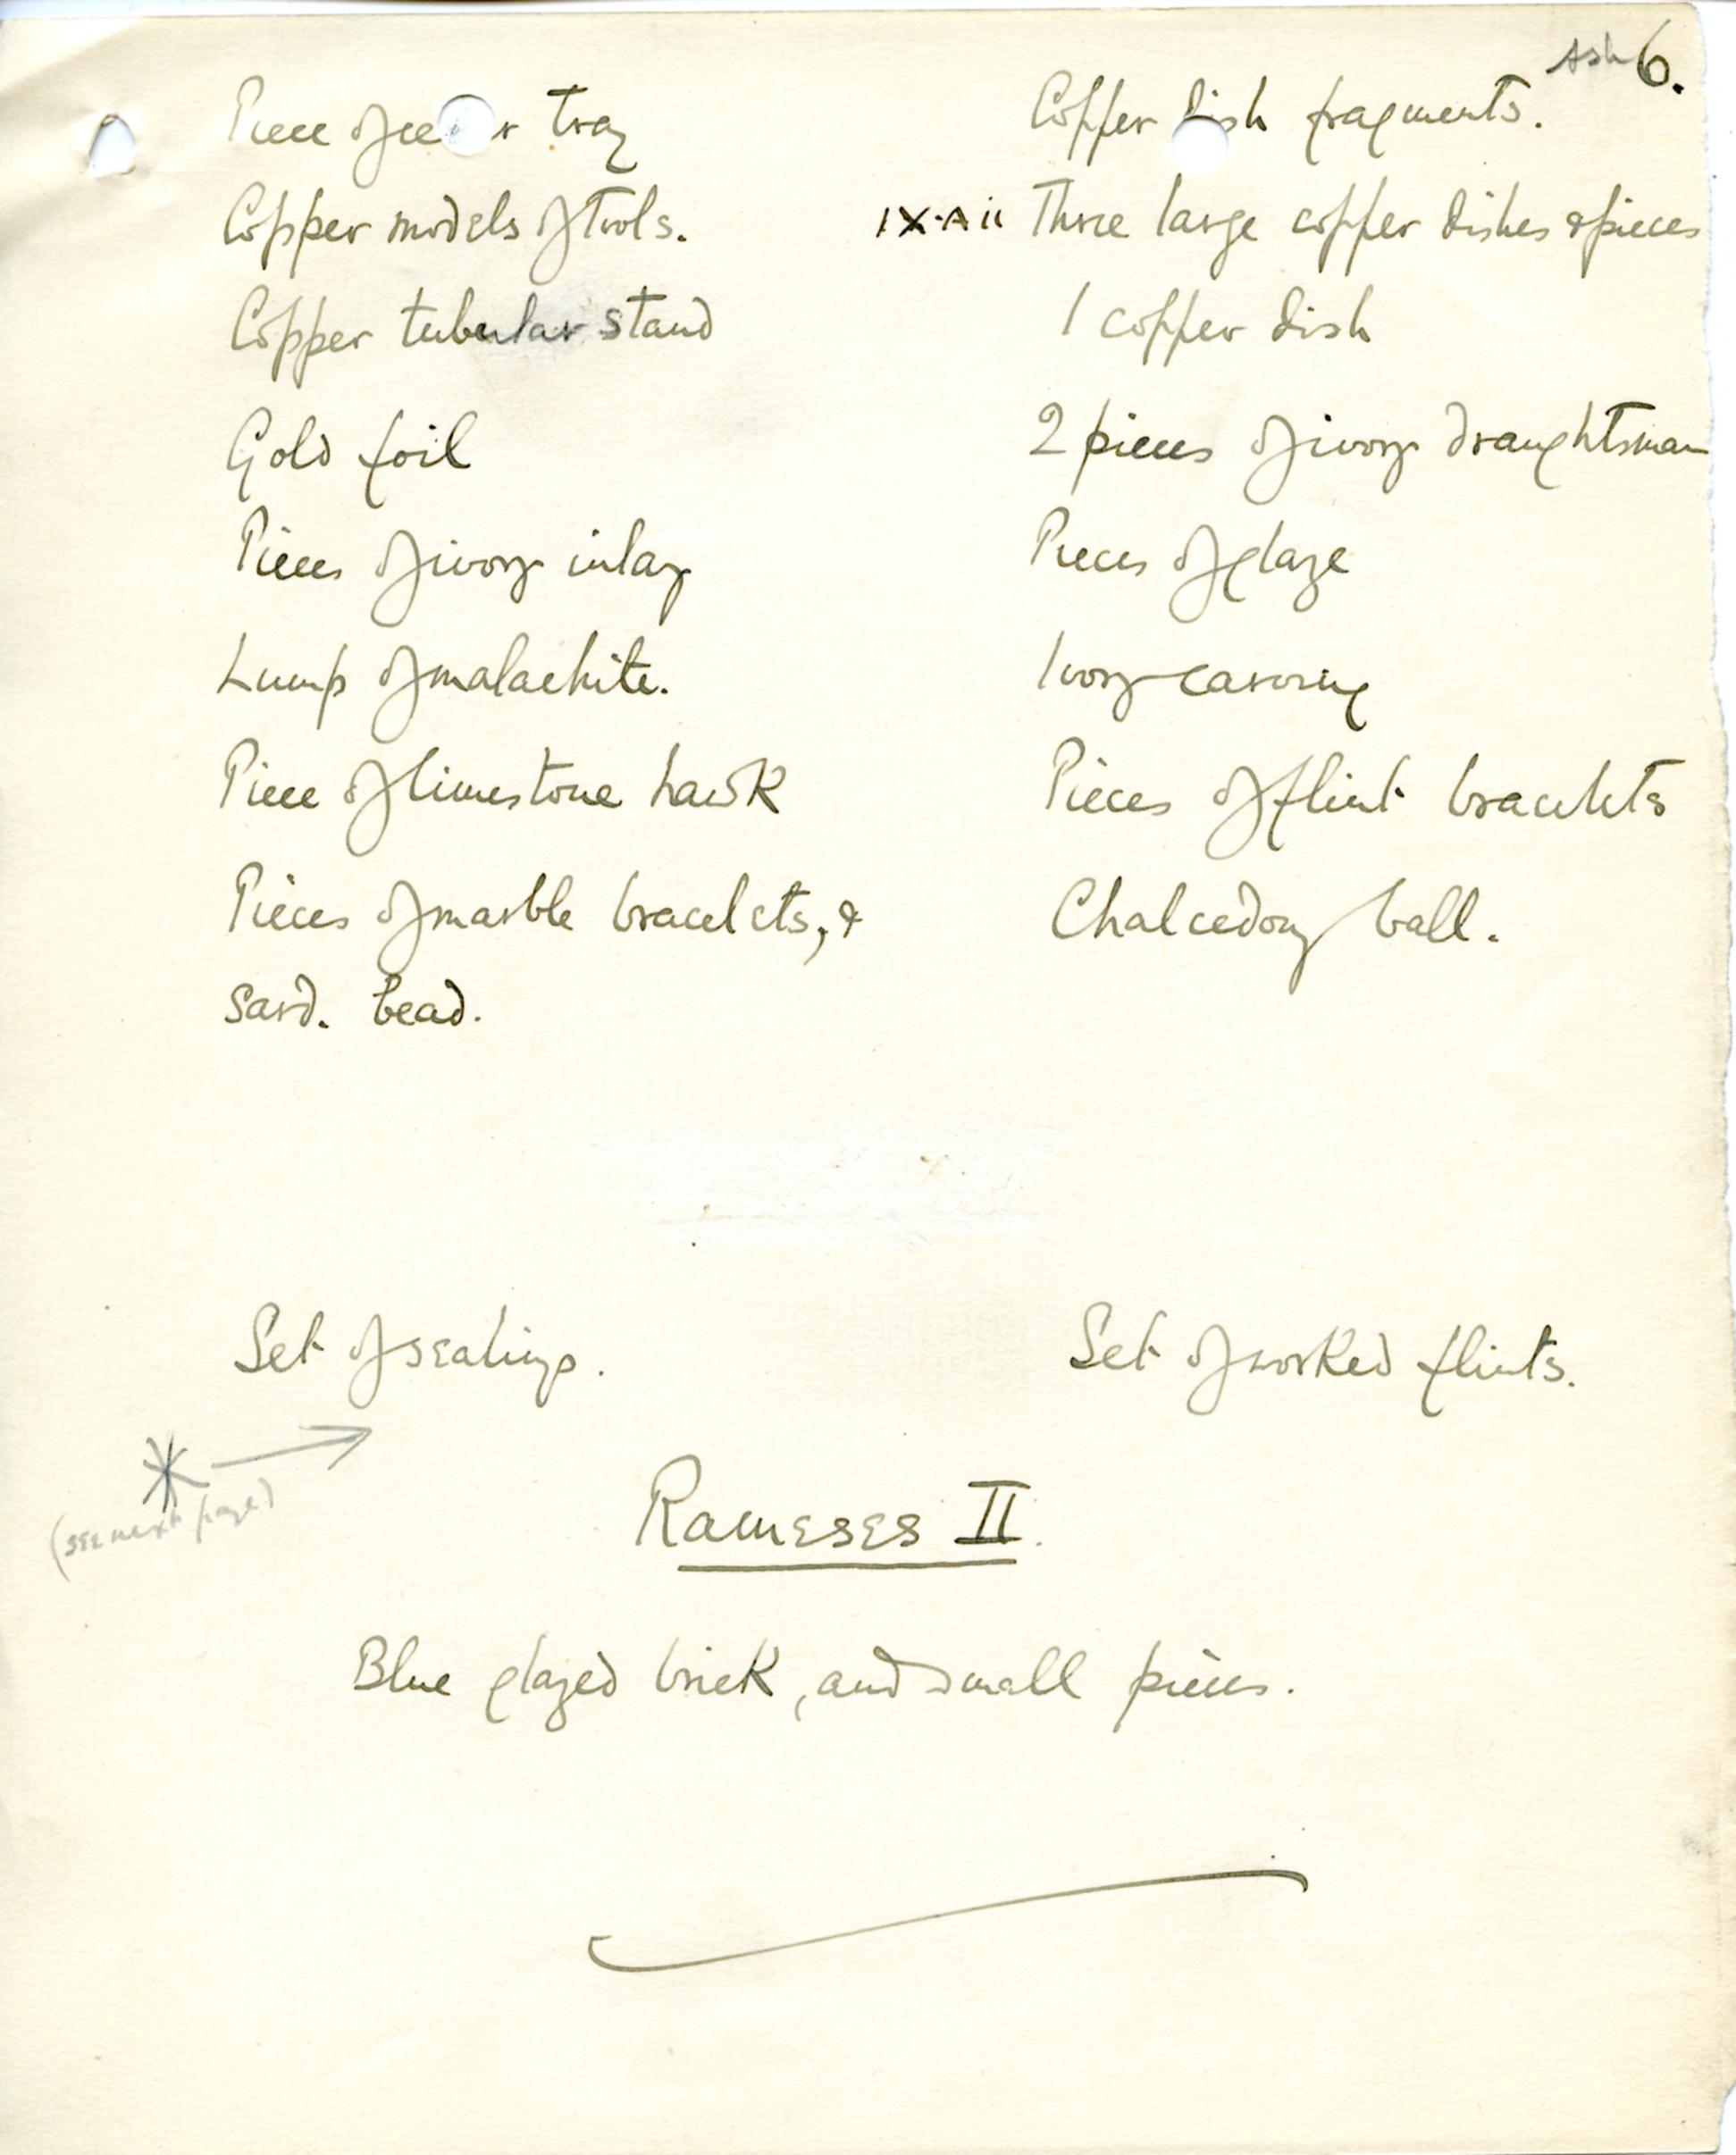 Ash 6.
Piece of tray
Copper dish fragments.
Copper models of tools.
IX.A ii Three large copper dishes & pieces
Copper tubular stand
1 copper dish
Gold foil
2 pieces of ivory draughtsman
Pieces of ivory inlay
Pieces of glaze
Lump of malachite.
Ivory carving
Piece of limestone hawk
Pieces of flint bracelets
Pieces of marble bracelets, &
Chalcedony ball.
Sard. bead.
Set of sealings.
Set of worked flints.
(see next page)
Rameses II.
Blue glazed brick, and small pieces.